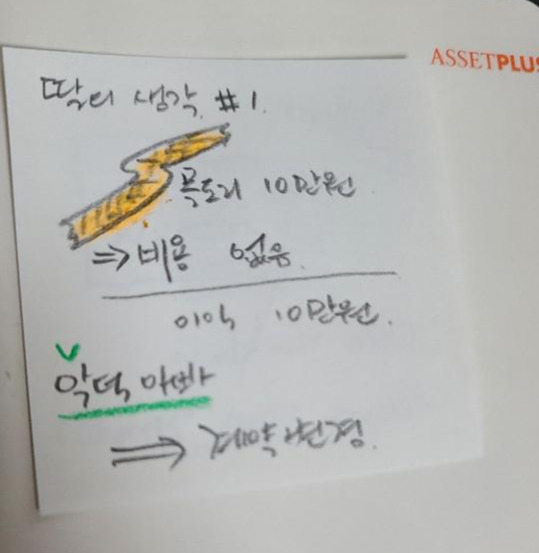 ASSETPLUS
딸의 생각 #1.
목도리 10만원
⇒ 비용 없음
이익 10만원.
악덕 아빠
⇒ 계약변경.